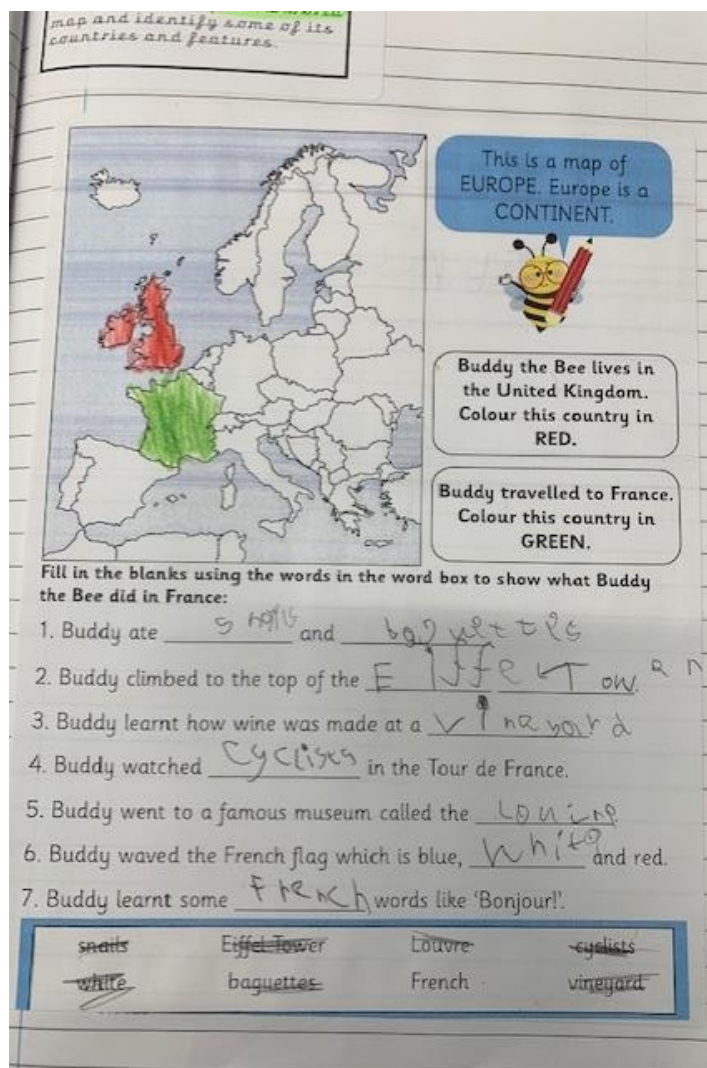 map and identify some of its
countries and features.
This is a map of
EUROPE. Europe is a
CONTINENT.
Buddy the Bee lives in
the United Kingdom.
Colour this country in
RED.
Buddy travelled to France.
Colour this country in
GREEN.
Fill in the blanks using the words in the word box to show what Buddy
the Bee did in France:
1. Buddy ate snails and baguettes
2. Buddy climbed to the top of the Eiffel Tower
3. Buddy learnt how wine was made at a
4. Buddy watched cyclists in the Tour de France.
5. Buddy went to a famous museum called the
6. Buddy waved the French flag which is blue, white and red.
7. Buddy learnt some French words like 'Bonjour!'.
snails Eiffel Tower Louvre cyclists
white baguettes French vineyard